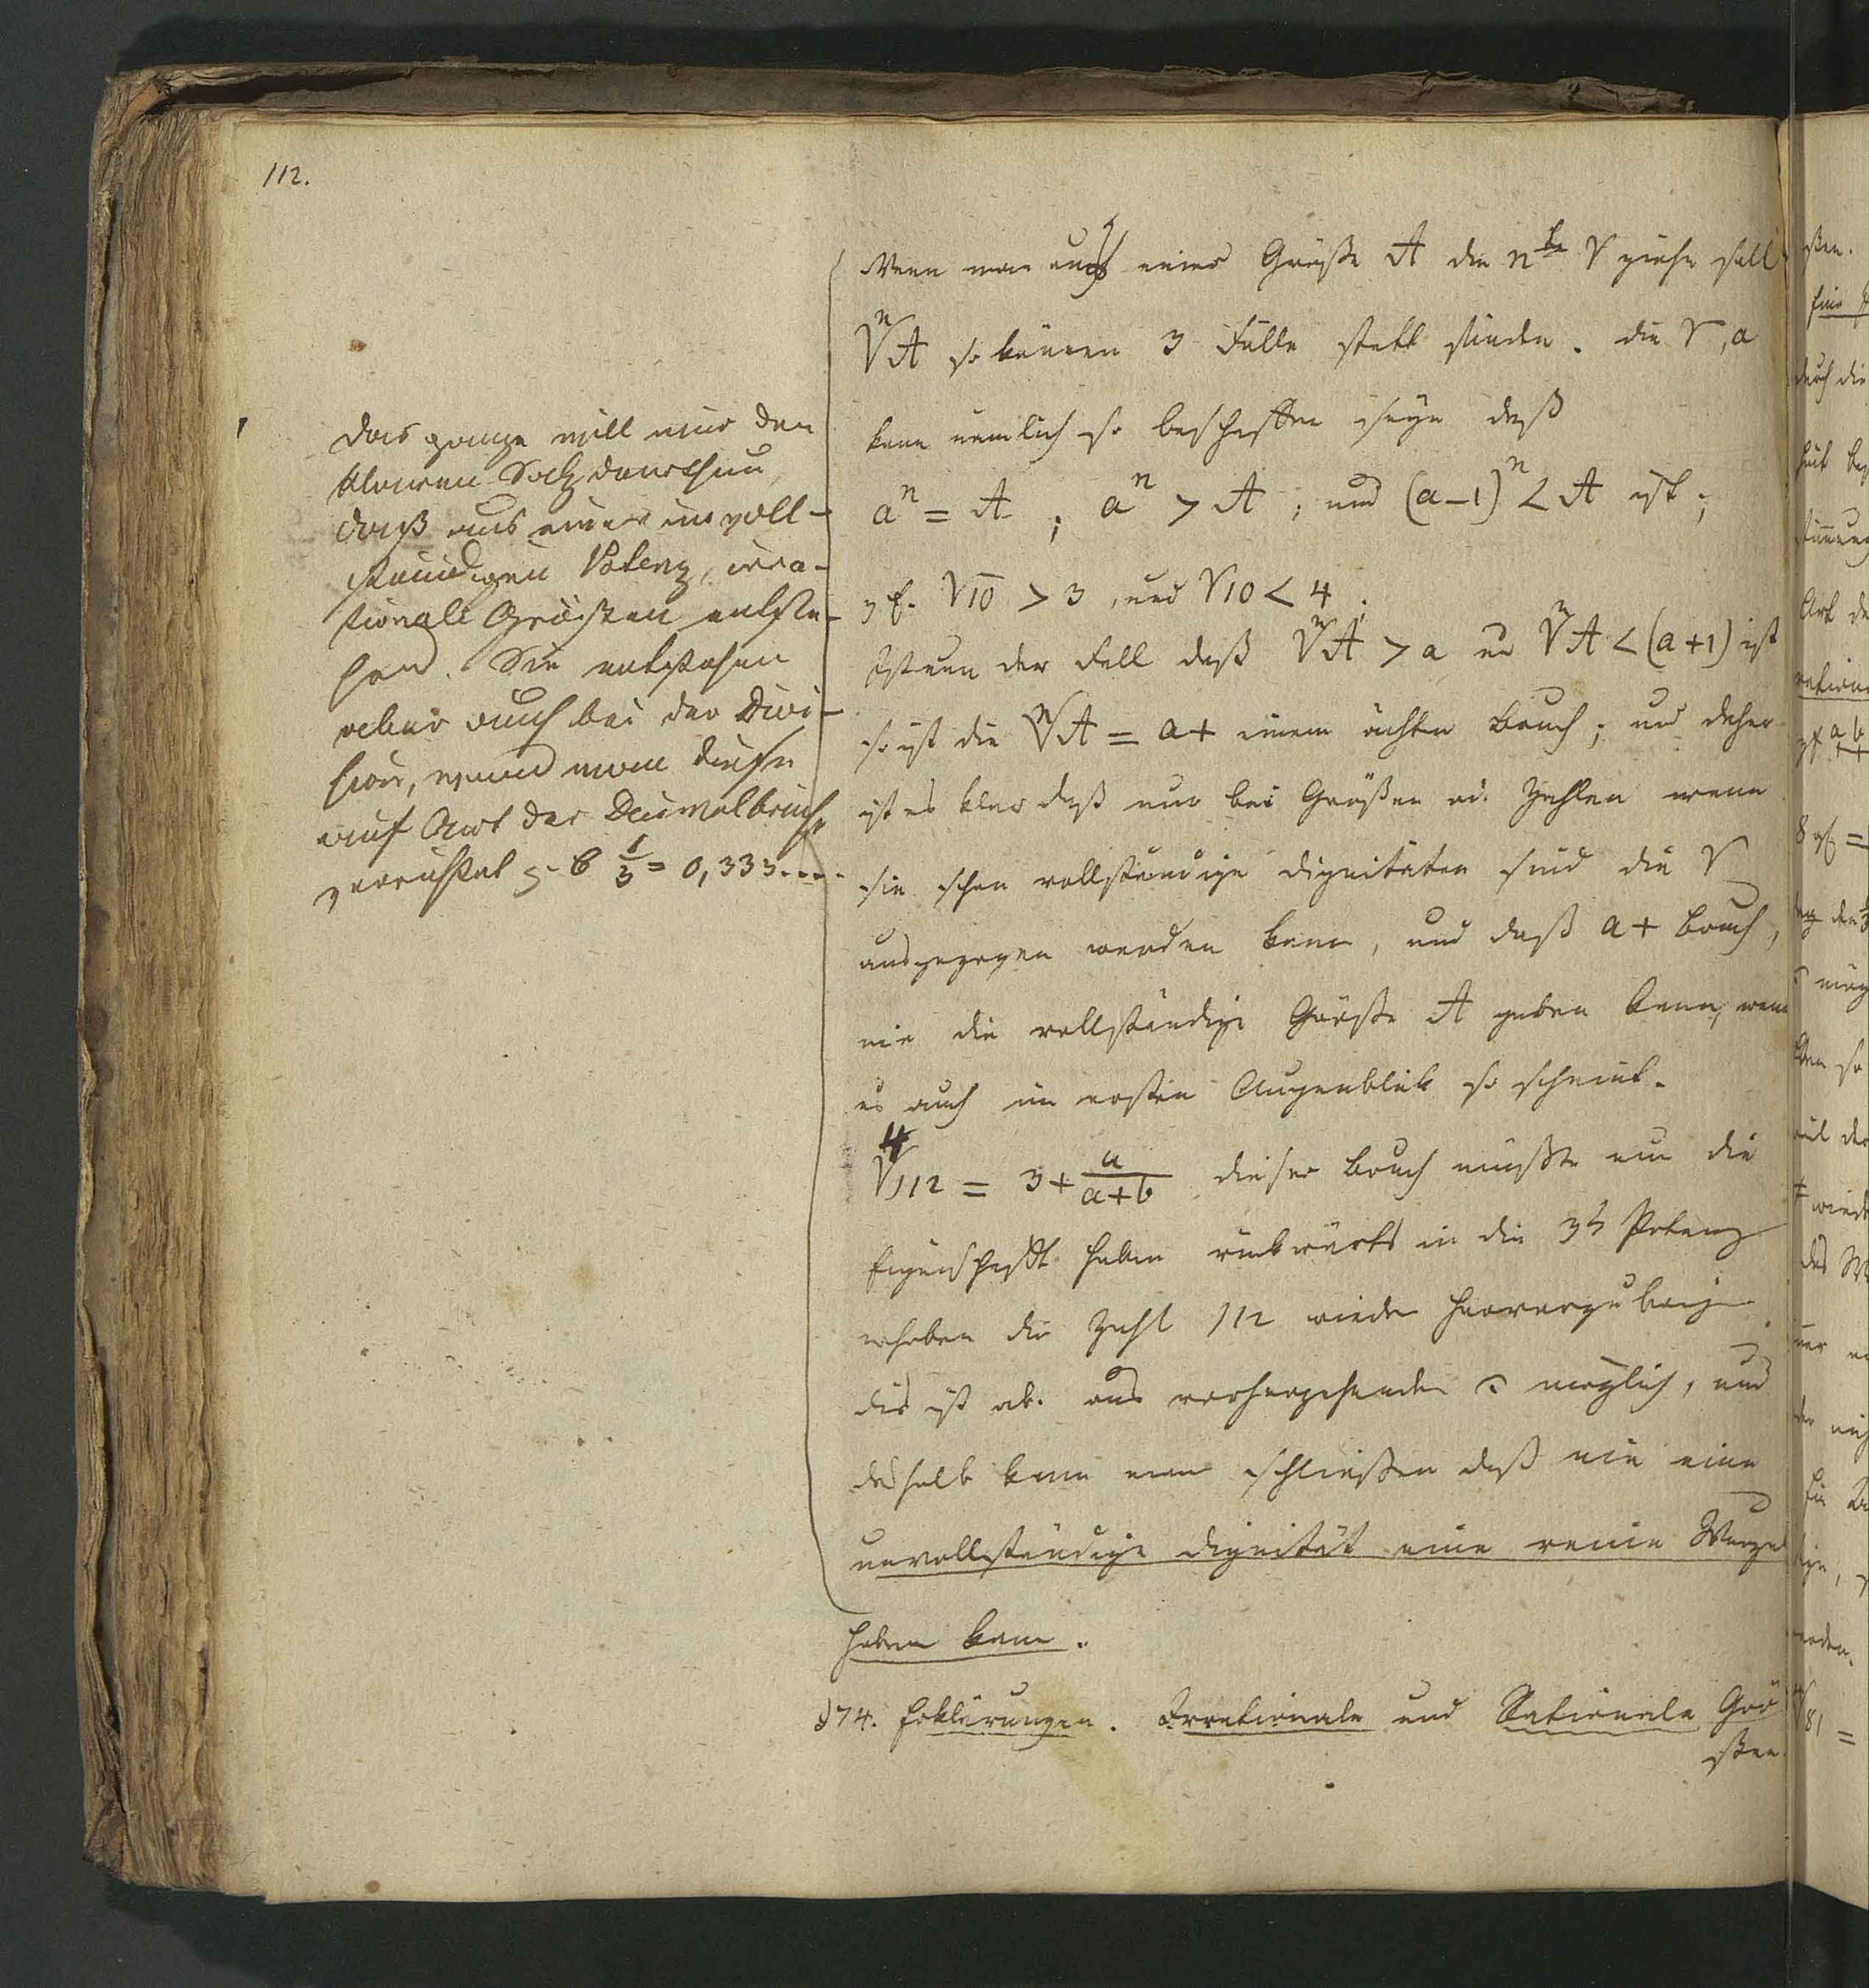 112.
Wenn man aus einer Größe A die n te √ ziehn soll
ⁿ√A so können 3 Fälle statt finden. die √, a
kann nemlich so beschaffen seyn daß
aⁿ = A ; aⁿ > A ; und (a-1)ⁿ < A ist ;
z E. √10 > 3, und √10 < 4.
Ist nun der Fall daß ⁿ√A > a und ⁿ√A < (a+1) ist
so ist die ⁿ√A = a + einem ächten Bruch ; und daher
ist es klar daß nur bei Größen od. Zahlen wenn
sie schon vollständige Dignitäten sind die √
ausgezogen werden kann, und daß a + Bruch,
nie die vollständige Größe A geben kann, wenn
es auch im ersten Augenblik so scheint.
⁴√112 = 3 + a/(a+b) dieser Bruch müßte nun die
Eigenschafft haben rükwärts in die Potenz
erhoben die Zahl 112 wieder hervorzubringen
dis ist ab. aus vorhergehenden möglich, und
deshalb kann man schließen daß nie eine
unvollständige Dignität eine reine Wurzel
haben kann.
§74. Erklärungen. Irrationale und Rationale Grö
ßen
das ganze will nur den
klaren Satz darthun,
daß aus einer unvoll-
ständigen Potenz, irra-
tionale Größen entste-
hen. Sie entstehen
aber auch bei der Divi-
sion, wenn man diese
auf Art der Decimalbrüche
verrichtet z. B 1/3 = 0,333....